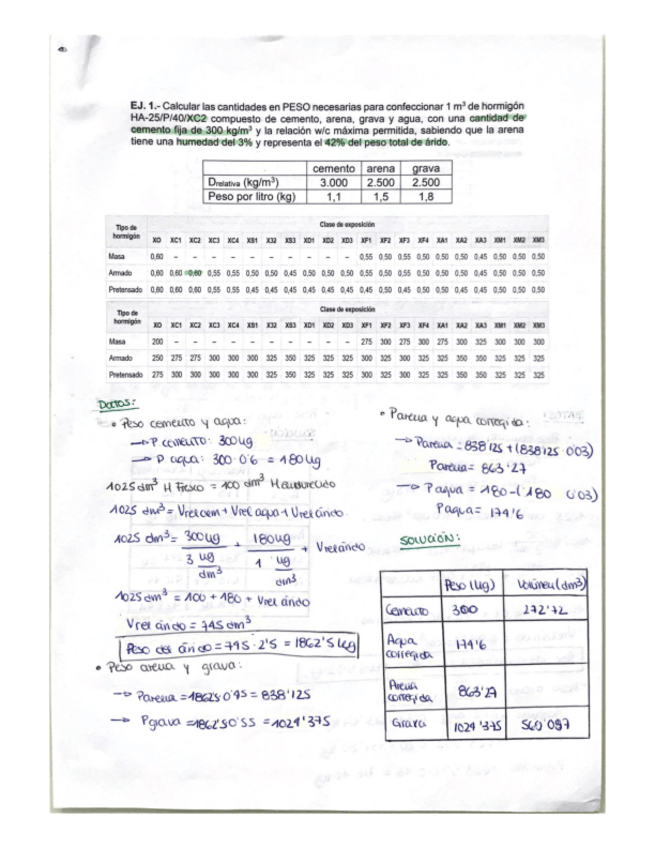 EJ. 1.- Calcular las cantidades en PESO necesarias para confeccionar 1 m³ de hormigón
HA-25/P/40/XC2 compuesto de cemento, arena, grava y agua, con una cantidad de
cemento fija de 300 kg/m³ y la relación w/c máxima permitida, sabiendo que la arena
tiene una humedad del 3% y representa el 42% del peso total de árido.
cemento arena grava
Drelativa (kg/m³) 3.000 2.500 2.500
Peso por litro (kg) 1,1 1,5 1,8
Tipo de hormigón Clase de exposición
XO XC1 XC2 XC3 XC4 XS1 XS2 XS3 XD1 XD2 XD3 XF1 XF2 XF3 XF4 XA1 XA2 XA3 XM1 XM2 XM3
Masa 0,60 – – – – – – – – – – 0,55 0,50 0,55 0,50 0,50 0,50 0,45 0,50 0,50 0,50
Armado 0,60 0,60 0,60 0,55 0,55 0,50 0,50 0,45 0,50 0,50 0,50 0,55 0,50 0,55 0,50 0,50 0,50 0,45 0,50 0,50 0,50
Pretensado 0,60 0,60 0,60 0,55 0,55 0,45 0,45 0,45 0,45 0,45 0,45 0,50 0,45 0,50 0,45 0,50 0,45 0,45 0,50 0,50 0,50
Tipo de hormigón Clase de exposición
XO XC1 XC2 XC3 XC4 XS1 XS2 XS3 XD1 XD2 XD3 XF1 XF2 XF3 XF4 XA1 XA2 XA3 XM1 XM2 XM3
Masa 200 – – – – – – – – – – 275 300 275 300 275 300 325 300 300 300
Armado 250 275 275 300 300 300 325 350 325 325 325 300 325 300 325 325 350 350 325 325 325
Pretensado 275 300 300 300 300 300 325 350 325 325 325 300 325 300 325 325 350 350 325 325 325
Datos:
• Peso cemento y agua:
→ P cemento: 300 kg
→ P agua: 300·0'6 = 180 kg
1025 dm³ H Fresco = 100 dm³ H endurecido
1025 dm³ = Vrel cem + Vrel agua + Vrel árido
1025 dm³ = 300 kg / 3 kg/dm³ + 180 kg / 1 kg/dm³ + Vrel árido
1025 dm³ = 100 + 180 + Vrel árido
Vrel árido = 745 dm³
Peso del árido = 745·2'5 = 1862'5 kg
• Peso arena y grava:
→ Parena = 1862'5·0'45 = 838'125
→ Pgrava = 1862'5·0'55 = 1024'375
• Parena y agua corregida:
→ Parena = 838'125 + (838'125·0'03)
Parena = 863'27
→ Pagua = 180 - (180 0'03)
Pagua = 174'6
Solución:
Peso (kg) Volúmen (dm³)
Cemento 300 272'72
Agua corregida 174'6
Arena corregida 863'27
Grava 1024'375 560'097